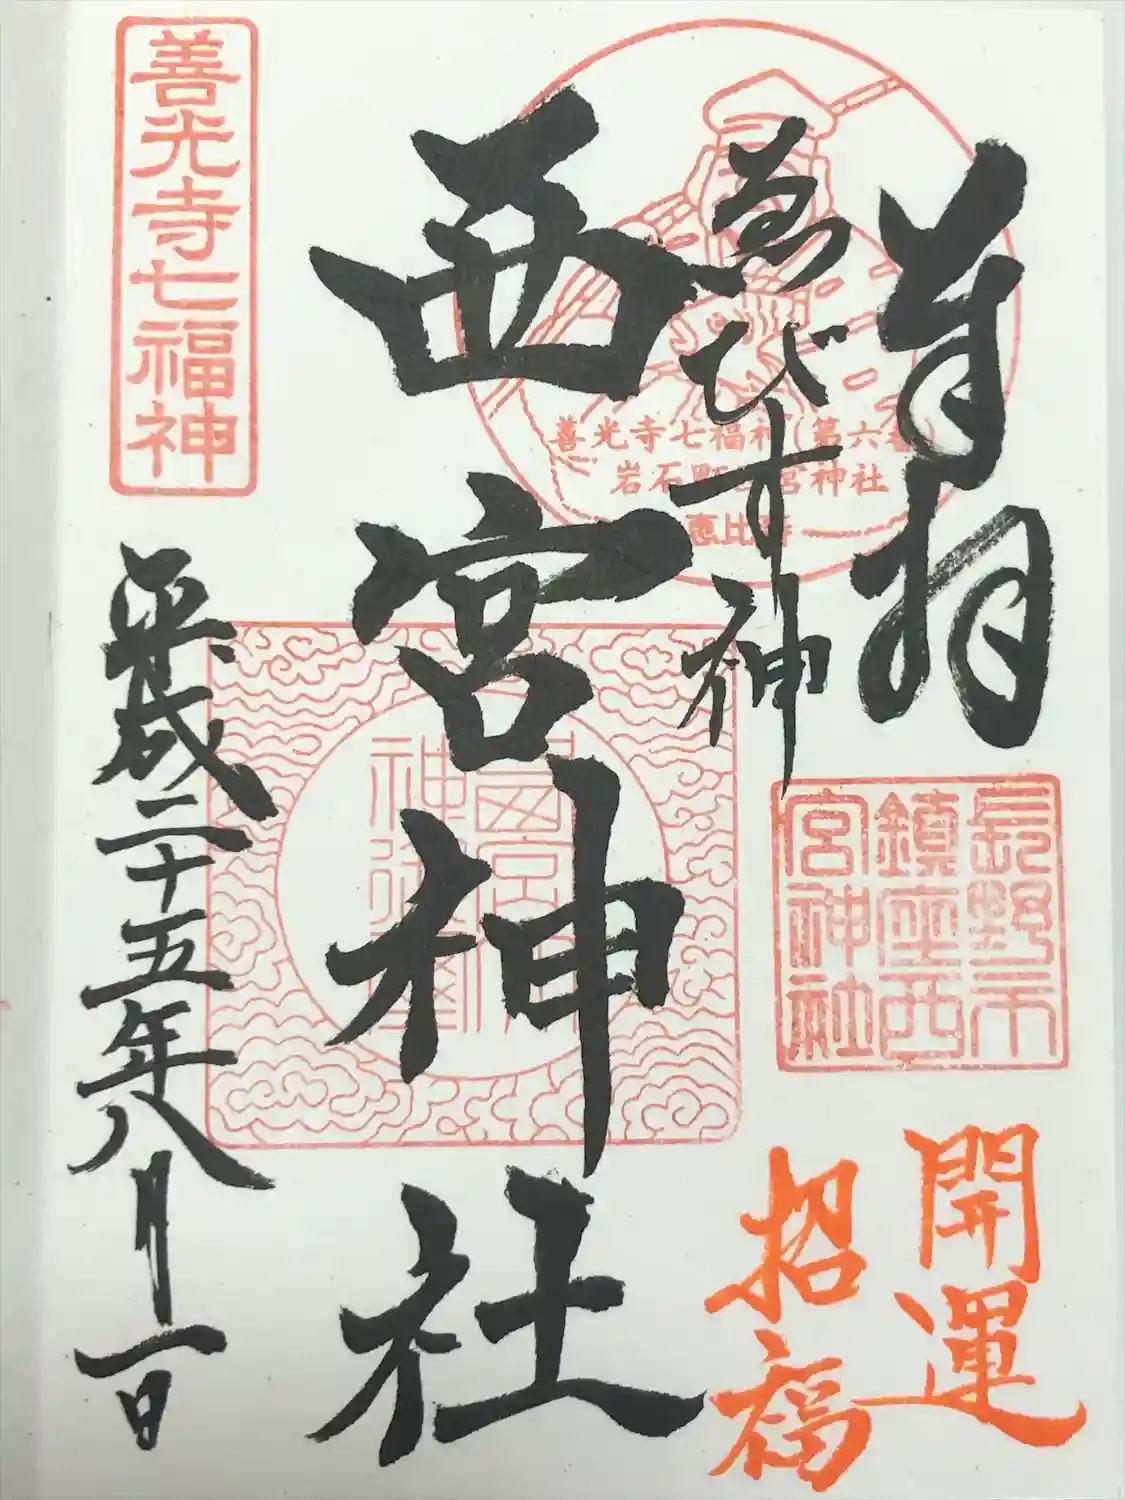 奉拝
ゑびす神
西宮神社
平成二十五年八月一日
善光寺七福神
善光寺七福神(第六番)
岩石町西宮神社
恵比寿
長野市
鎮座西
宮神社
開運
招福